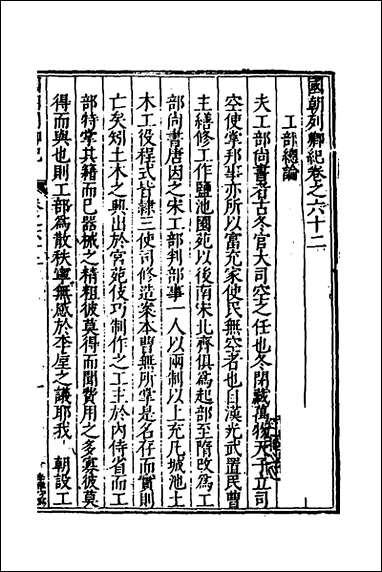 國朝列卿紀卷之六十二
工部總論
夫工部尚書者古冬官大司空之任也冬閉藏萬物天子立司
空使掌邦事亦所以富充家使民無空者也自漢光武置民曹
主繕修工作鹽池園苑以後南宋北齊俱爲起部至隋改為工
部尚書唐因之宋工部判部事一人以兩制以上充凡城池土
木工役程式皆隸三使司修造案本曹無所掌是名存而實則
亡矣矧土木之興出於宮苑伎巧制作之工主於內侍省而工
部特掌其籍而已器械之精粗彼莫得而聞費用之多寡彼莫
得而與也則工部為散秩寧無感於李垕之議耶我 朝設工